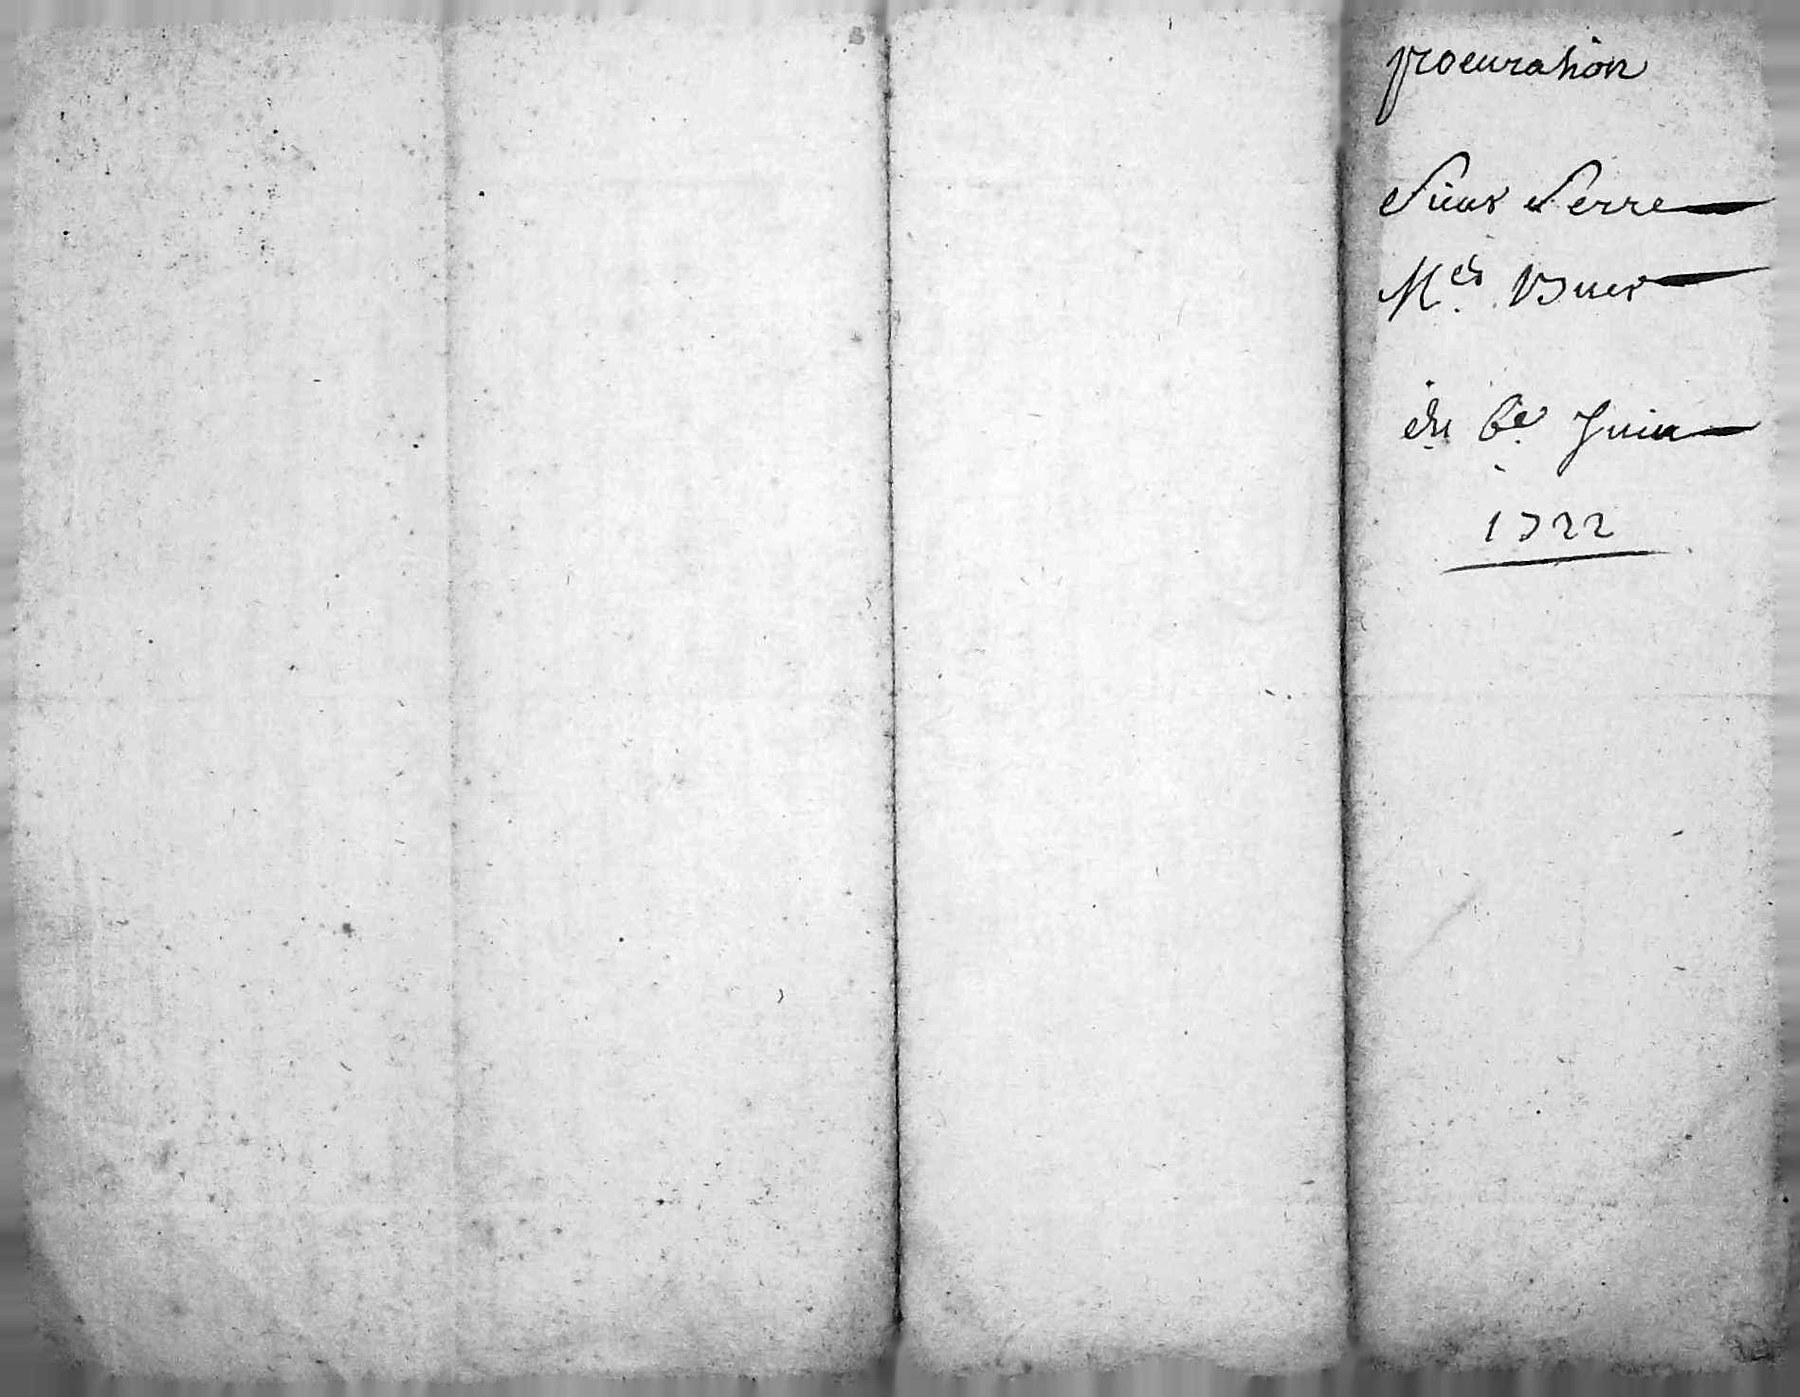 procuration
Sieur Serre
Me.
du 6e. Juin
1722